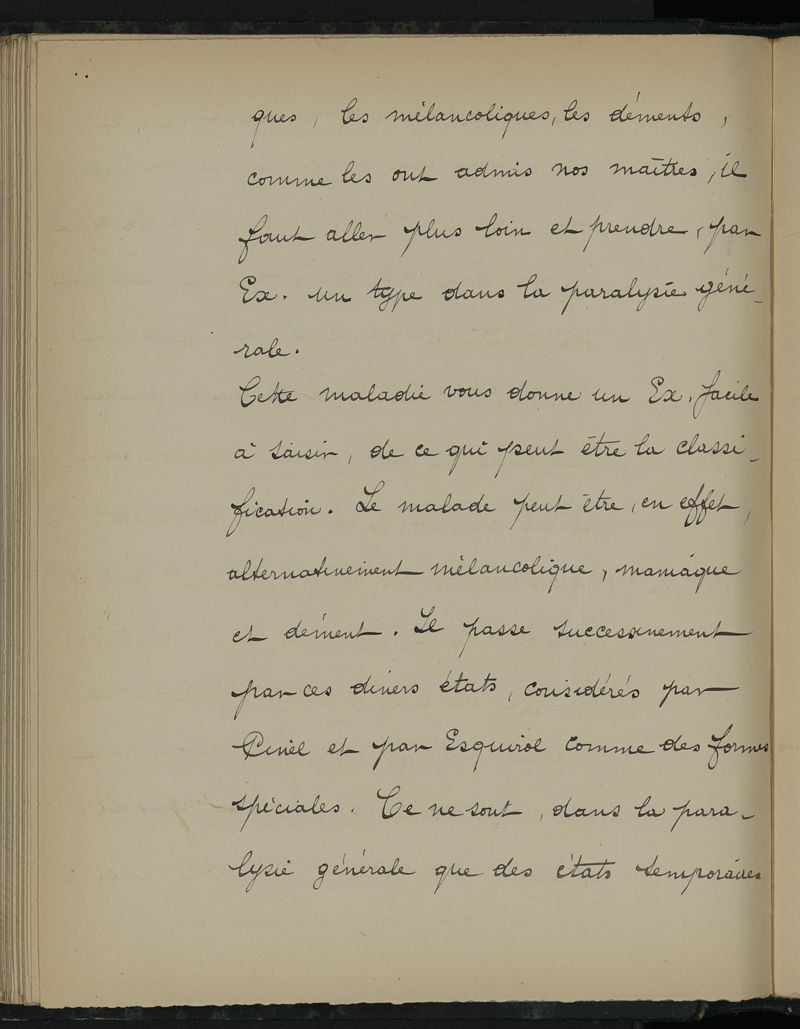 ques, les mélancoliques, les déments,
comme les ont admis nos maîtres, il
faut aller plus loin et prendre, par
Ex. un type dans la paralysie géné-
rale.
Cette maladie vous donne un Ex. facile
à saisir, de ce qui peut être la classi-
fication. Le malade peut être, en effet,
alternativement mélancolique, maniaque
et dément. Il passe successivement
par ces divers états, considérés par
Pinel et par Esquirol comme des formes
spéciales. Ce ne sont, dans la para-
lysie générale que des états temporaires